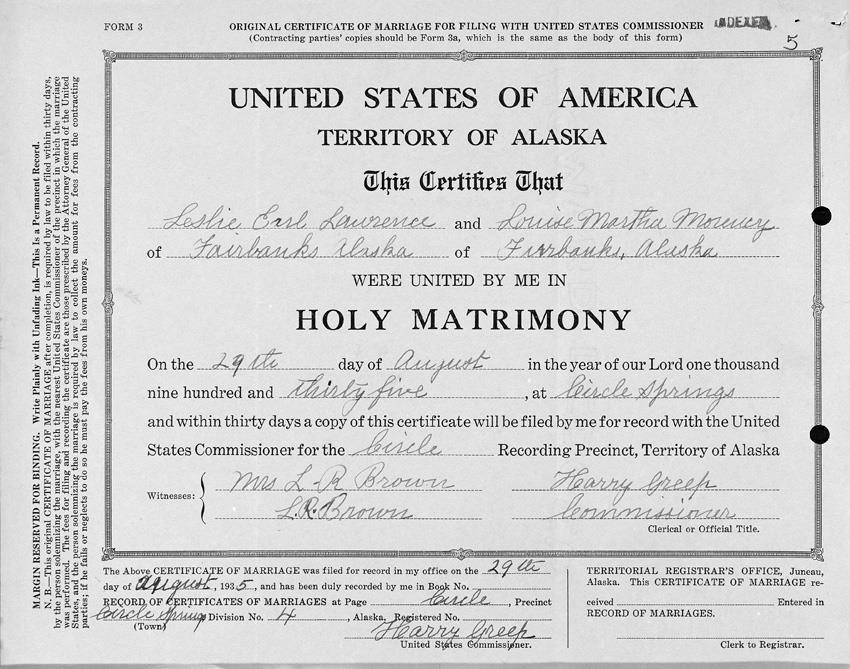 FORM 3
ORIGINAL CERTIFICATE OF MARRIAGE FOR FILING WITH UNITED STATES COMMISSIONER
INDEXED
(Contracting parties' copies should be Form 3a, which is the same as the body of this form)
5
MARGIN RESERVED FOR BINDING. Write Plainly with Unfading Ink—This Is a Permanent Record.
N. B.—This original CERTIFICATE OF MARRIAGE, after completion, is required by law to be filed within thirty days,
by the person solemnizing the marriage, with the nearest United States Commissioner of the precinct in which the marriage
was performed. The fees for filing and recording the certificate are those prescribed by the Attorney General of the United
States, and the person solemnizing the marriage is required by law to collect the amount for fees from the contracting
parties; if he fails or neglects to do so he must pay the fees from his own moneys.
UNITED STATES OF AMERICA
TERRITORY OF ALASKA
This Certifies That
Leslie Earl Lawrence and Louise Martha
of Fairbanks Alaska of Fairbanks, Alaska
WERE UNITED BY ME IN
HOLY MATRIMONY
On the 29th day of August in the year of our Lord one thousand
nine hundred and thirty five, at Circle Springs
and within thirty days a copy of this certificate will be filed by me for record with the United
States Commissioner for the Circle Recording Precinct, Territory of Alaska
Witnesses: Mrs L. R Brown Harry Greep
L.R. Brown Commissioner
Clerical or Official Title.
The Above CERTIFICATE OF MARRIAGE was filed for record in my office on the 29th
day of August, 1935, and has been duly recorded by me in Book No.
RECORD OF CERTIFICATES OF MARRIAGES at Page Circle, Precinct
Circle Springs Division No. 4, Alaska. Registered No.
(Town)
Harry Greep
United States Commissioner.
TERRITORIAL REGISTRAR'S OFFICE, Juneau,
Alaska. This CERTIFICATE OF MARRIAGE re-
ceived Entered in
RECORD OF MARRIAGES.
Clerk to Registrar.